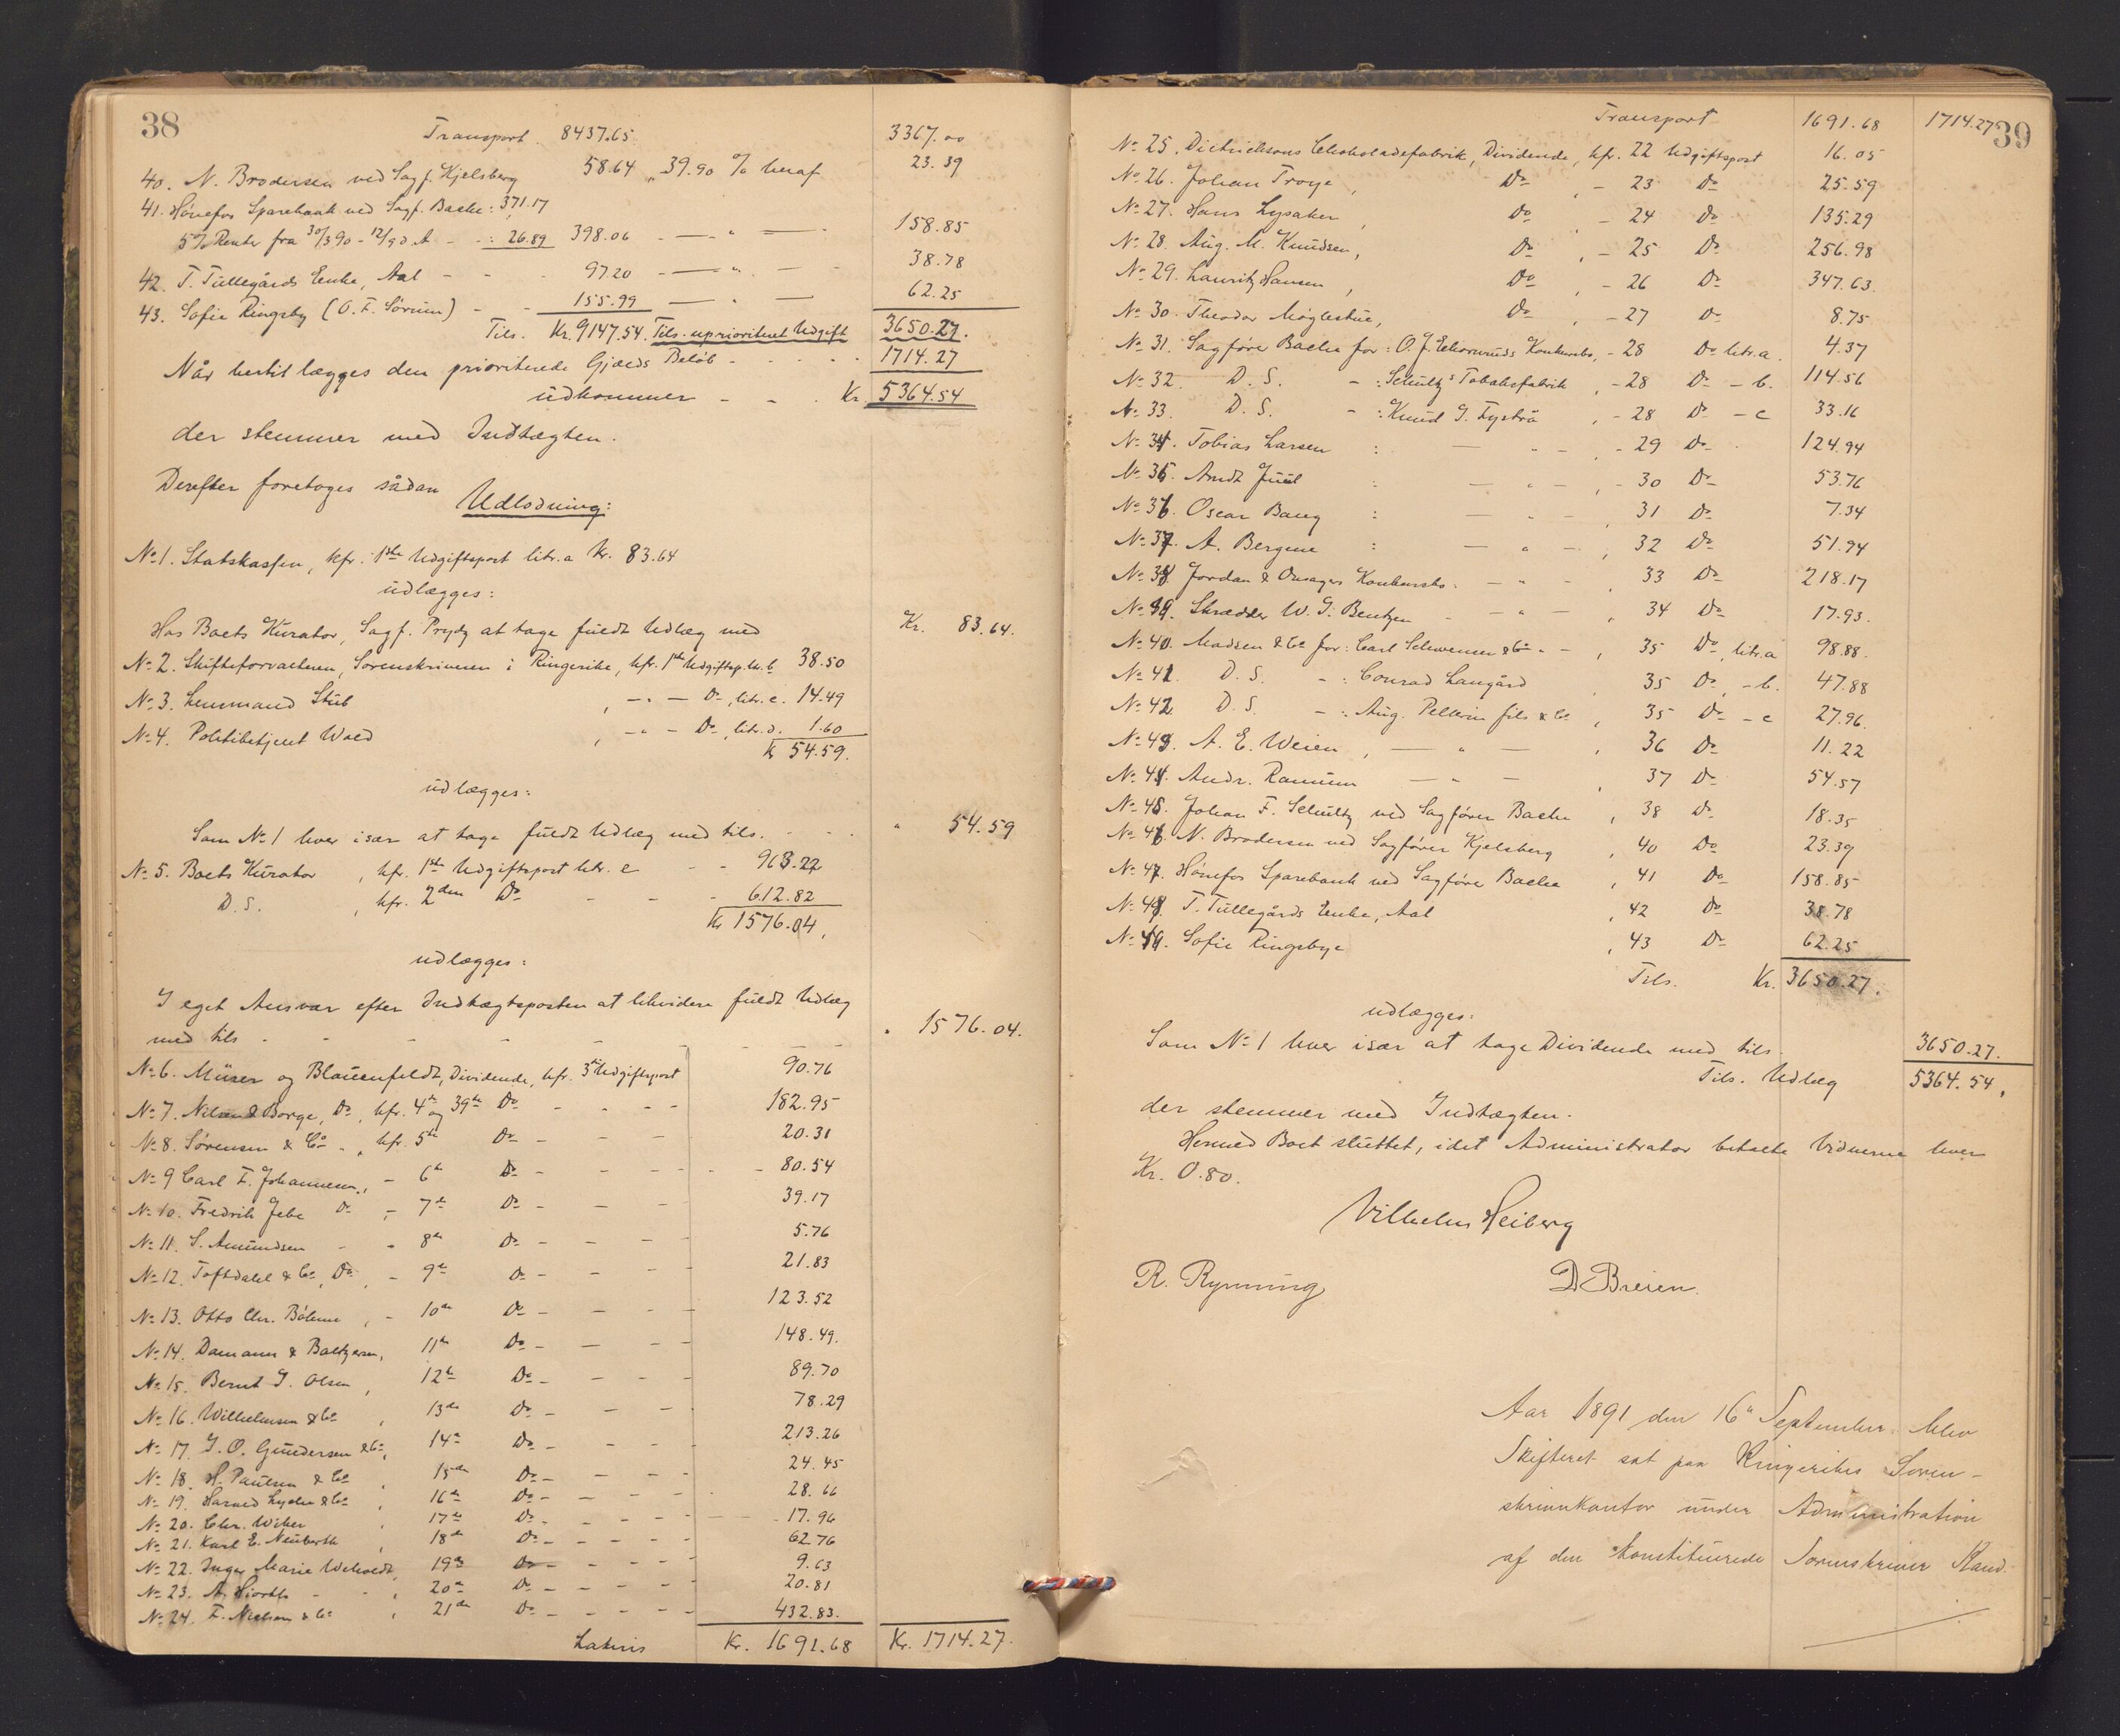 38
Transport. 8437.65. 3367.00
40. N. Brodersen ved Sagf. Kjelsberg 58.64 „ 39.90 % heraf 23.39
41. Hønefos Sparebank ved Sagf. Bache: 371.17
5% Renter fra 30/3 90 - 12/9 d. A. - : 26.89 398.06 - — „ — 158.85
42. T. Tullegårds Enke, Aal - - - 97.20 - — „ — - 38.78
43. Sofie Ringsby (O. F. Sørum) - - 155.99 — „ — 62.25
Tils. Kr. 9147.54. Tils. uprioriteret Udgift 3650.27.
Når hertil lægges den prioriterede Gjælds Beløb - - - - - 1714.27
udkommer - - - Kr. 5364.54
der stemmer med Indtægten.
Derefter foretoges sådan
Udlodning:
No 1. Statskassen, kfr. 1ste Udgiftspost litr. a Kr. 83.64
udlægges:
Hos Boets Kurator, Sagf. Prydz at tage fuldt Udlæg med Kr. 83.64.
No 2. Skifteforvalteren, Sorenskriveren i Ringerike, kfr. 1ste Udgiftsp. lit. b 38.50
No 3. Lensmand Stub , - „ - Do, litr. c. 14.49
No 4. Politibetjent Wold , - „ - Do, litr. d. 1.60
Kr 54.59.
udlægges:
Som No 1 hver især at tage fuldt Udlæg med tils. - - - „ 54.59
No 5. Boets Kurator , kfr. 1ste Udgiftspost litr. e - - 963.22
D. S. , kfr. 2den Do - - - 612.82
Kr 1576.04.
udlægges:
I eget Ansvar efter Indtægtsposten at likvidere fuldt Udlæg
med tils - - - - - - - - „ 1576.04.
No 6. Müser og Blauenfeldt, Dividende, kfr. 3de Udgiftspost 90.76
No 7. Nilsen & Borge, Do, kfr. 4de og 39te Do - - - - 182.95
No 8. Sørensen & Co - „ kfr. 5te Do - - - 20.31
No 9 Carl F. Johannesen, - 6te Do - - - - - 80.54
No 10. Fredrik Jebe Do - 7de Do - - - 39.17
No 11. S. Amundsen - - 8de Do - - - - 5.76
No 12. Toftdahl & Co, Do, - 9de Do - - - - 21.83
No 13. Otto Chr. Bøhme , - 10de Do - - - - 123.52
No 14. Damann & Baltzersen, 11te Do - - - - 148.49.
No 15. Bernt J. Olsen , 12te Do - - - - 89.70
No 16. Wilhelmsen & Co , 13de Do - - - - 78.29
No 17. J. O. Gundersen & Co, 14de Do - - - - 213.26
No 18. H. Paulsen & Co , 15de Do - - - - 24.45
No 19. Harald Lyche & Co , 16de Do - - - - 28.66
No 20. Chr. Wiker , 17de Do - - - - 17.96
No 21. Karl E. Neuberth , 18de Do - - - - 62.76
No 22. Inger Marie Wehvedt, 19de Do - - - - 9.63
No 23. A. Hiorth - - , 20de Do - - - - 20.81
No 24. F. Nielsen & Co , 21de Do - - - - 432.83.
Lateris Kr. 1691.68 Kr. 1714.27.
39
Transport 1691.68 1714.27
No 25. Dietrichsons Chokoladefabrik, Dividende, kfr. 22 Udgiftspost 16.05
No 26. Johan Troye , Do , - 23 Do 25.59
No 27. Hans Lysaker , Do , - 24 Do 135.29
No 28. Aug. M. Knudsen, Do , - 25 Do 256.98
No 29. Lauritz Hansen , Do , - 26 Do 347.63.
No 30. Theodor Møglestue, Do , - 27 Do 8.75
No 31. Sagfører Bache for: O. J. Ekornruds Konkursbo, - 28 Do litr. a. 4.37
No 32. D. S. - : Schultz's Tobaksfabrik , - 28 Do - b. 114.56
No 33. D. S. - : Knud G. Tystrå , - 28 Do - c 33.16
No 34. Tobias Larsen : — „ - , - 29 Do 124.94
No 35. Arndt Juul : — „ - , - 30 Do 53.76
No 36. Oscar Baug : — „ - , 31 Do 7.34
No 37. A. Bergene : — „ - , 32 Do 51.94
No 38. Jordan & Onsagers Konkursbo. - „ - , 33 Do 218.17
No 39. Skrædder W. G. Bentzen - - „ - , 34 Do 17.93.
No 40. Madsen & Co for: Carl Schwenser & Co - - , 35 Do, litr. a 98.88.
No 41. D. S. - : Conrad Langård , 35 Do, - b. 47.88
No 42. D. S. - : Aug. Pellerin fils & Co , 35 Do - c 27.96.
No 43. A. E. Weien , — „ — , 36 Do 11.22
No 44. Andr. Ramum — „ — , 37 Do 54.57
No 45. Johan F. Schultz ved Sagfører Bache , 38 Do 18.35
No 46. N. Brodersen ved Sagfører Kjelsberg , 40 Do 23.39
No 47. Hønefos Sparebank ved Sagføre Bache , 41 Do 158.85
No 48. T. Tullegårds Enke, Aal , 42 Do 38.78
No 49. Sofie Ringsbye , 43 Do 62.25
Tils. Kr. 3650.27.
udlægges:
Som No 1 hver især at tage Dividende med tils. 3650.27.
Tils. Udlæg 5364.54.
der stemmer med Indtægten.
Hermed Boet sluttet, idet Administrator betalte Vidnerne hver
Kr. 0.80.
Vilhelm Heiberg
R. Rynning D Breien.
Aar 1891 den 16de September blev
Skifteret sat paa Ringerikes Soren-
skriverkontor under Administration
af den konstituerede Sorenskriver Kand.